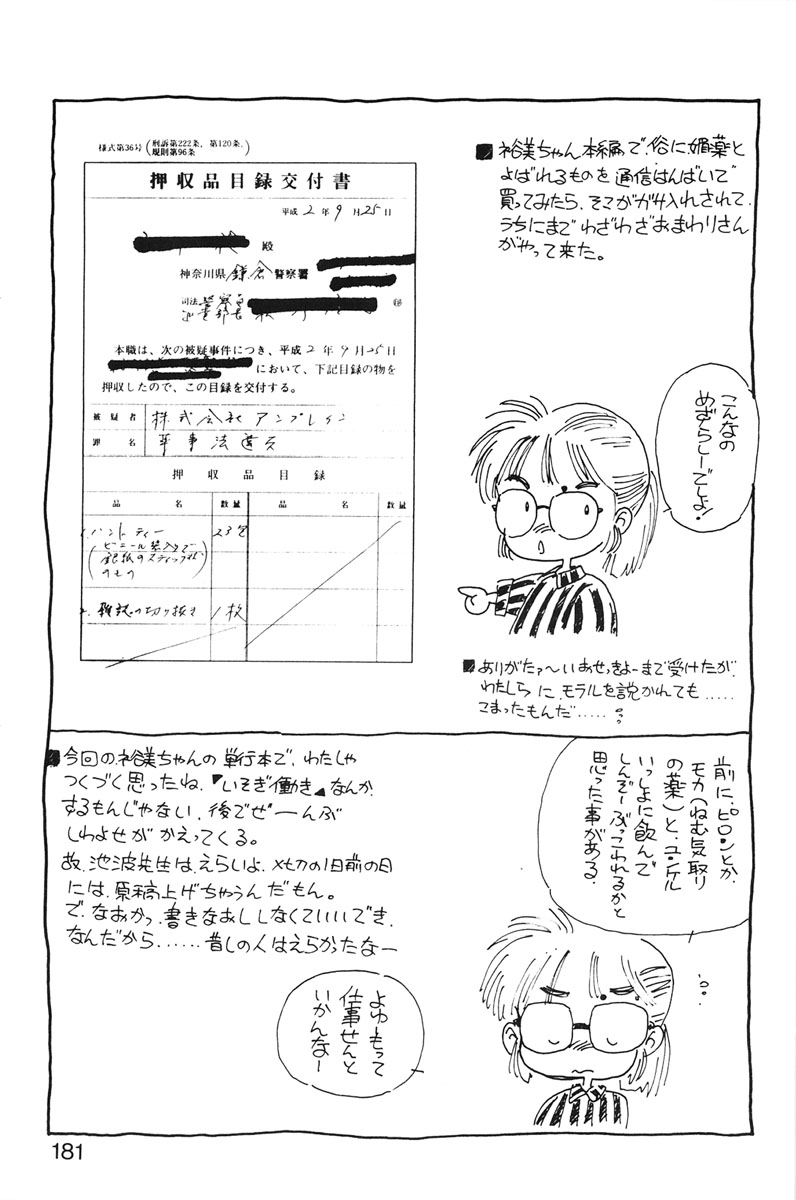 ■裕美ちゃん本編で、俗に媚薬と
よばれるものを通信はんばいで
買ってみたら、そこがガサ入れされて、
うちにまでわざわざおまわりさん
がやって来た。
様式第36号(刑訴第222条、第120条、
規則第96条)
押収品目録交付書
平成2年9月25日
殿
神奈川県鎌倉警察署
司法警察員
㊞
本職は、次の被疑事件につき、平成2年9月25日
において、下記目録の物を
押収したので、この目録を交付する。
被疑者 株式会社アンプレイン
罪名 薬事法違反
押収品目録
品名 数量 品名 数量
1. ハントティー 23包
(ビニール袋入りで
銀紙のスティック状
のもの)
2. 雑誌の切り抜き 1枚
こんなの
めずらしーでしょ!
■ありがたァ〜いおせっきょーまで受けたが、
わたしらに、モラルを説かれても……
こまったもんだ……
前に、ピロンとか、
モカ(ねむ気取り
の薬)と、ユンケル
いっしょに飲んで
しんぞーぶっこわれるかと
思った事がある。
■今回の裕美ちゃんの単行本で、わたしゃ
つくづく思ったね、『いそぎ働き』なんか、
するもんじゃない、後でぜーんぶ
しわよせがかえってくる。
故、池波先生は、えらいよ、〆切の1日前の日
には、原稿上げちゃうんだもん。
で、なおかつ、書きなおししなくていいでき、
なんだから、……昔しの人はえらかったなー
よゆーもって
仕事せんと
いかんなー
181